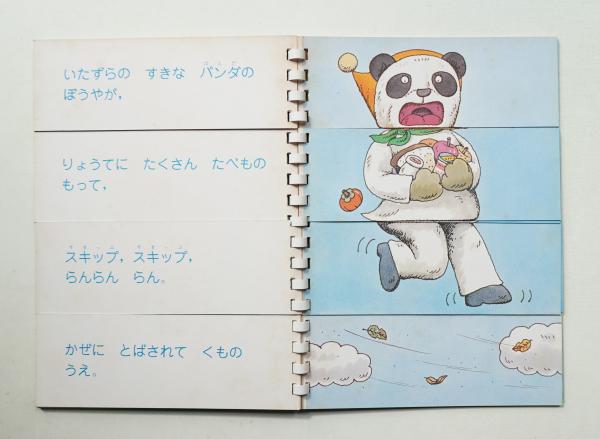 いたずらの すきな パンダの
ぼうやが,
りょうてに たくさん たべもの
もって,
スキップ, スキップ,
らんらん らん。
かぜに とばされて くもの
うえ。